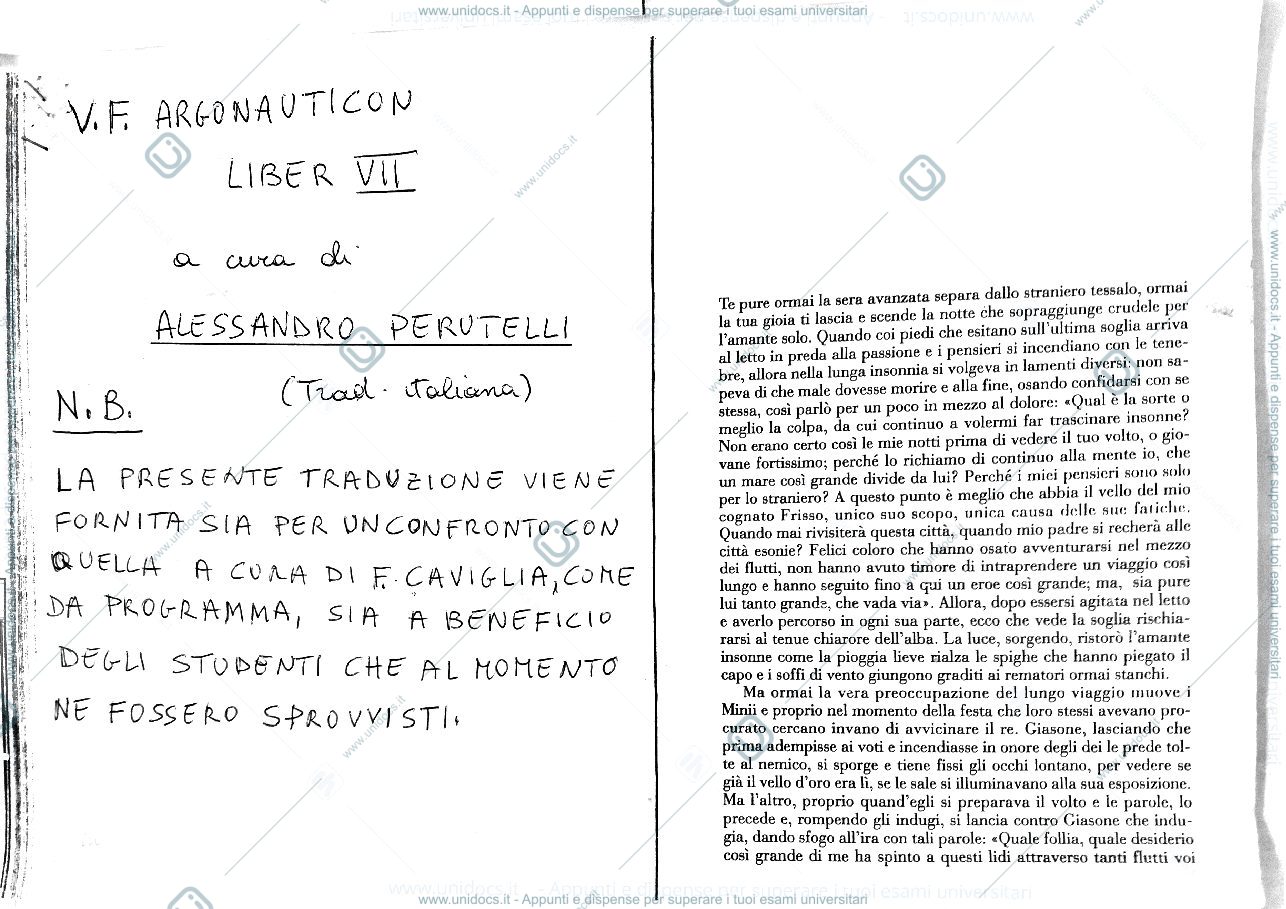 www.unidocs.it - Appunti e dispense per superare i tuoi esami universitari
V.F. ARGONAUTICON
LIBER VII
a cura di
ALESSANDRO PERUTELLI
(Trad. italiana)
N.B.
LA PRESENTE TRADUZIONE VIENE
FORNITA SIA PER UN CONFRONTO CON
QUELLA A CURA DI F. CAVIGLIA, COME
DA PROGRAMMA, SIA A BENEFICIO
DEGLI STUDENTI CHE AL MOMENTO
NE FOSSERO SPROVVISTI.
Te pure ormai la sera avanzata separa dallo straniero tessalo, ormai
la tua gioia ti lascia e scende la notte che sopraggiunge crudele per
l'amante solo. Quando coi piedi che esitano sull'ultima soglia arriva
al letto in preda alla passione e i pensieri si incendiano con le tene-
bre, allora nella lunga insonnia si volgeva in lamenti diversi: non sa-
peva di che male dovesse morire e alla fine, osando confidarsi con se
stessa, così parlò per un poco in mezzo al dolore: «Qual è la sorte o
meglio la colpa, da cui continuo a volermi far trascinare insonne?
Non erano certo così le mie notti prima di vedere il tuo volto, o gio-
vane fortissimo; perché lo richiamo di continuo alla mente io, che
un mare così grande divide da lui? Perché i miei pensieri sono solo
per lo straniero? A questo punto è meglio che abbia il vello del mio
cognato Frisso, unico suo scopo, unica causa delle sue fatiche.
Quando mai rivisiterà questa città, quando mio padre si recherà alle
città esonie? Felici coloro che hanno osato avventurarsi nel mezzo
dei flutti, non hanno avuto timore di intraprendere un viaggio così
lungo e hanno seguito fino a qui un eroe così grande; ma, sia pure
lui tanto grande, che vada via». Allora, dopo essersi agitata nel letto
e averlo percorso in ogni sua parte, ecco che vede la soglia rischia-
rarsi al tenue chiarore dell'alba. La luce, sorgendo, ristorò l'amante
insonne come la pioggia lieve rialza le spighe che hanno piegato il
capo e i soffi di vento giungono graditi ai rematori ormai stanchi.
Ma ormai la vera preoccupazione del lungo viaggio muove i
Minii e proprio nel momento della festa che loro stessi avevano pro-
curato cercano invano di avvicinare il re. Giasone, lasciando che
prima adempisse ai voti e incendiasse in onore degli dei le prede tol-
te al nemico, si sporge e tiene fissi gli occhi lontano, per vedere se
già il vello d'oro era lì, se le sale si illuminavano alla sua esposizione.
Ma l'altro, proprio quand'egli si preparava il volto e le parole, lo
precede e, rompendo gli indugi, si lancia contro Giasone che indu-
gia, dando sfogo all'ira con tali parole: «Quale follia, quale desiderio
così grande di me ha spinto a questi lidi attraverso tanti flutti voi
www.unidocs.it - Appunti e dispense per superare i tuoi esami universitari